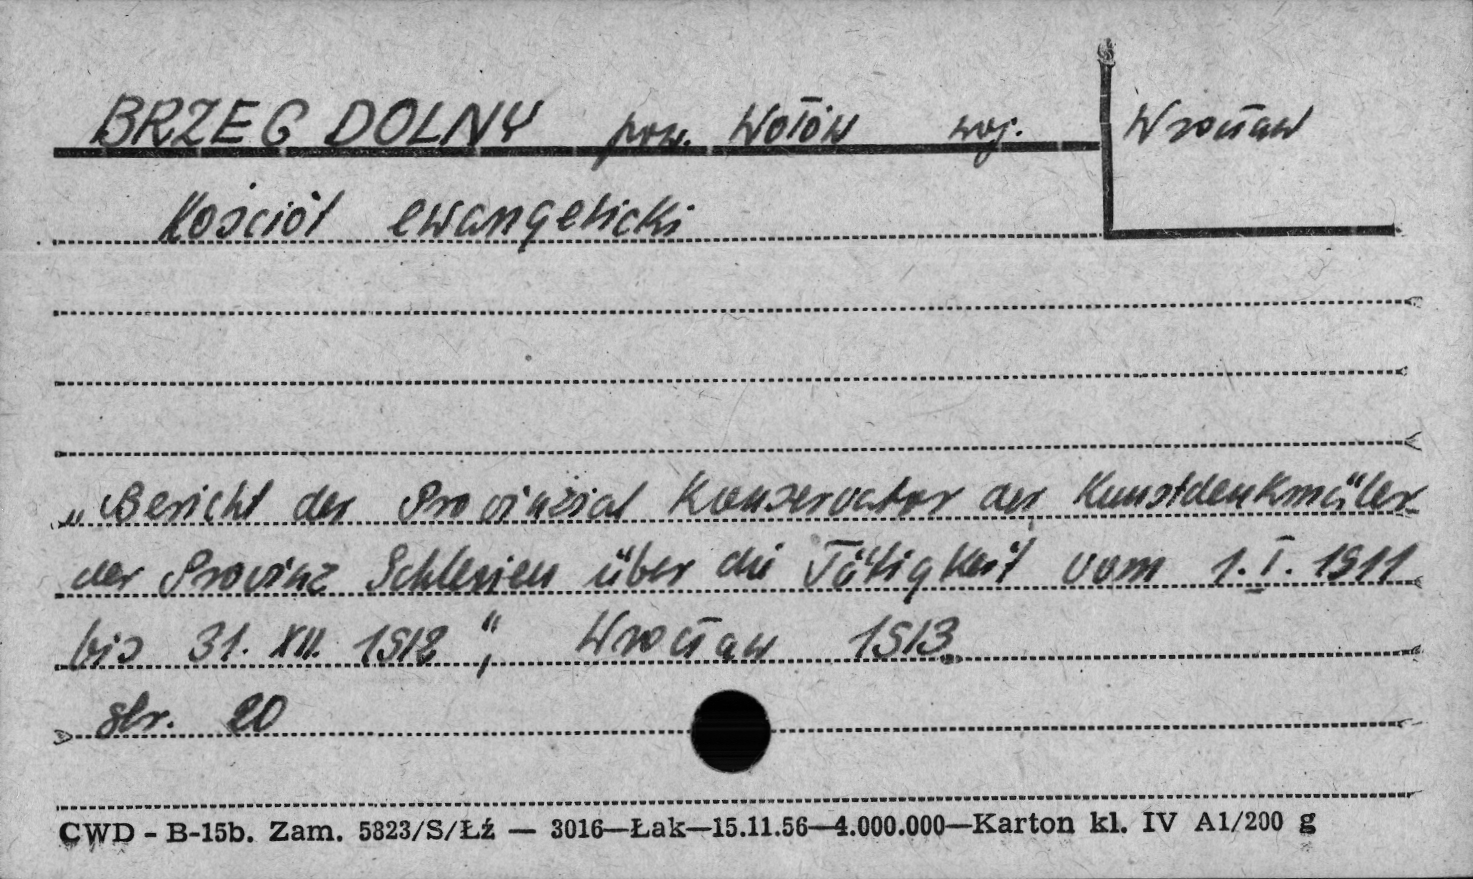 BRZEG DOLNY pow. Wołów woj. Wrocław
Kościół ewangelicki
„Bericht der Provinzial Konservator der Kunstdenkmäler
der Provinz Schlesien über die Tätigkeit vom 1.I.1911
bis 31.XII.1912", Wrocław 1913.
str. 20
CWD - B-15b. Zam. 5823/S/Łź — 3016—Łak—15.11.56—4.000.000—Karton kl. IV A1/200 g